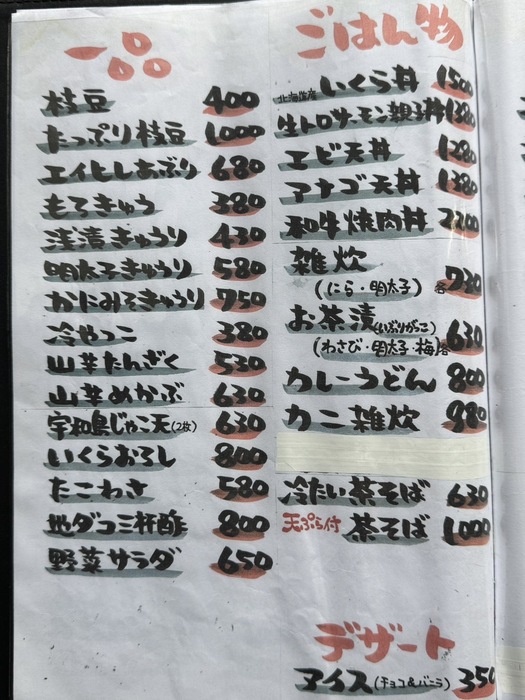 一品
枝豆 400
たっぷり枝豆 1000
エイヒレあぶり 680
もろきゅう 380
浅漬きゅうり 430
明太子きゅうり 580
かにみそきゅうり 750
冷やっこ 380
山芋たんざく 530
山芋めかぶ 630
宇和島じゃこ天(2枚) 630
いくらおろし 800
たこわさ 580
地ダコ三杯酢 800
野菜サラダ 650
ごはん物
北海道産 いくら丼 1500
生トロサーモン親子丼 1380
エビ天丼 1280
アナゴ天丼 1380
和牛焼肉丼 2200
雑炊
(にら・明太子) 各 730
お茶漬(いぶりがっこ)
(わさび・明太子・梅)各 630
カレーうどん 800
カニ雑炊 980
冷たい茶そば 630
天ぷら付 茶そば 1000
デザート
アイス(チョコ&バニラ) 350